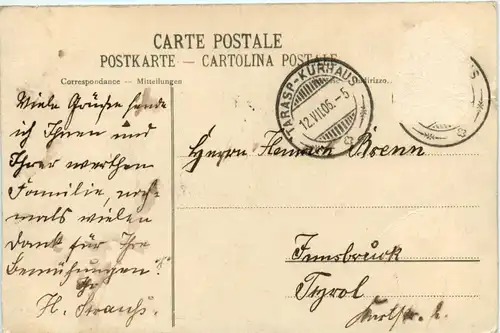 CARTE POSTALE
POSTKARTE – CARTOLINA POSTALE
Correspondance — Mitteilungen
TARASP-KURHAUS
12.VII.06.-5
Viele Grüße sende
ich Ihnen und
Ihrer werthen
Familie, noch-
mals vielen
Dank für Ihre
Bemühungen
Ihr
H. Strauß.
Herrn Heinrich Brenn
Innsbruck
Tyrol